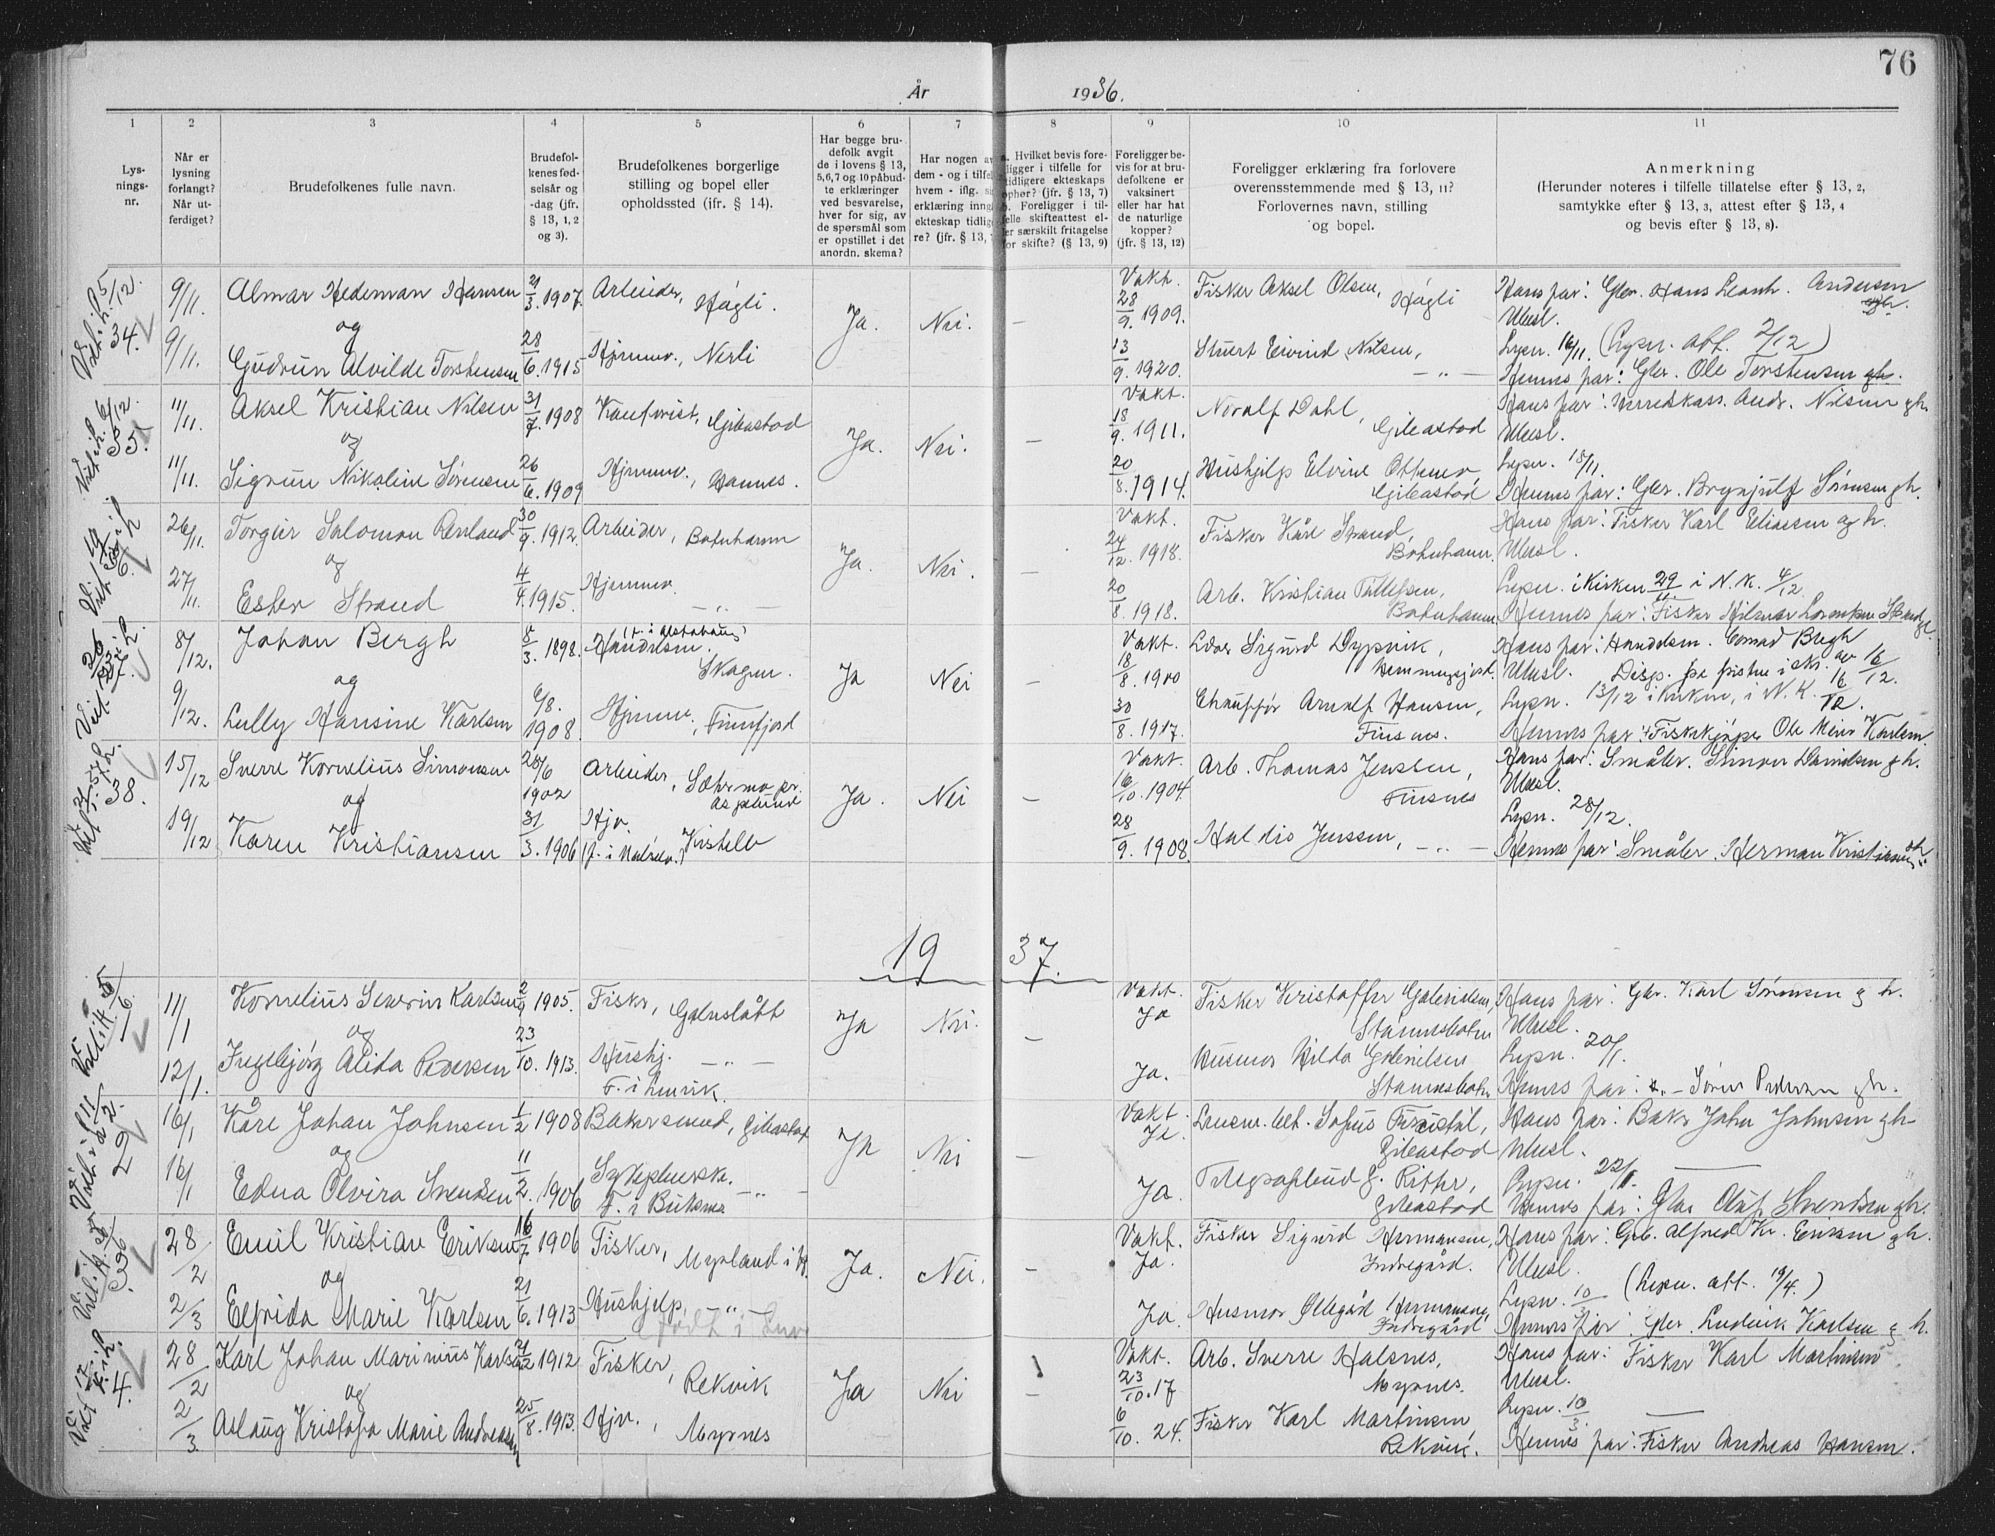 76
År 1936.
1 2 3 4 5 6 7 8 9 10 11
Lys-
nings-
nr.
Når er
lysning
forlangt?
Når ut-
ferdiget?
Brudefolkenes fulle navn.
Brudefol-
kenes fød-
selsår og
-dag (jfr.
§ 13, 1, 2
og 3).
Brudefolkenes borgerlige
stilling og bopel eller
opholdssted (jfr. § 14).
Har begge bru-
defolk avgit
de i lovens § 13,
5,6,7 og 10 påbud-
te erklæringer
ved besvarelse,
hver for sig, av
de spørsmål som
er opstillet i det
anordn. skema?
Har nogen a
dem - og i tilfel
hvem - iflg. s
erklæring inng
ekteskap tidlig
re? (jfr. § 13,
a. Hvilket bevis fore-
ligger i tilfelle for
tidligere ekteskaps
ophør? (jfr. § 13, 7)
b. Foreligger i til-
felle skifteattest el-
ler særskilt fritagelse
for skifte? (§ 13, 9)
Foreligger be-
vis for at bru-
defolkene er
vaksinert
eller har hat
de naturlige
kopper?
(jfr. § 13, 12)
Foreligger erklæring fra forlovere
overensstemmende med § 13, 11?
Forlovernes navn, stilling
og bopel.
Anmerkning
(Herunder noteres i tilfelle tillatelse efter § 13, 2,
samtykke efter § 13, 3, attest efter § 13, 4
og bevis efter § 13, 8).
34.
9/11. Almar Hedeman Hansen 21/3. 1907. Arbeider, Høgli. Ja. Nei. — Vakt. 28/9. 1909. Fisker Aksel Olsen, Høgli Hans far: Gbr. Hans Leonh. Andersen gbr.
og Ulusl.
9/11. Gudrun Alvilde Torstensen 28/6. 1915 Hjemmev., Nerli 13/9. 1920. Stuert Eivind Nilsen, — „ — Lysn. 16/11. (Lysn. att. 2/12)
Hennes far: Gbr. Ole Torstensen gh.
35.
11/11. Aksel Kristian Nilsen 31/7. 1908 Kontorist, Gibostad Ja. Nei. — Vakt. 18/9. 1911. Noralf Dahl, Gibostad Hans far: Herredskass. Andr. Nilsen gh.
og Ulusl.
11/11. Sigrun Nikoline Sørensen 26/6. 1909 Hjemmev., Vannes. 20/8. 1914. Hushjelp Elvine Ottesen, Gibostad Lysn. 18/11.
Hennes far: Gbr. Brynjulf Sørensen gh.
36.
26/11. Torger Salomon Renland 30/9. 1912. Arbeider, Botnhamn Ja. Nei. — Vakt. 24/12. 1918. Fisker Kåre Strand, Botnhamn. Hans far: Fisker Karl Eliassen og h.
og Ulusl.
27/11. Ester Strand 4/4. 1915. Hjemmev. — „ — 20/8. 1918. Arb. Kristian Tollefsen, Botnhamn Lysn. i kirken 29/11 i N.k. 4/12.
Hennes far: Fisker Hilmar Lorentsen Strand
37.
8/12. Johan Bergh 8/3. 1898. Handelsm. (f. i Alstahaug) Skogen. Ja Nei — Vakt. 18/8. 1900 Sigurd Dypvik, Hemmingsjord. Hans far: Handelsm. Conrad Bergh
og Ulusl. Disp. fra fristen i skr. av 16/12.
9/12. Lully Hansine Karlsen 6/8. 1908. Hjemmev., Finnfjord 30/8. 1917. Chauffør Arnolf Hansen, Finsnes. Lysn. 13/12 i kirken, i N.K. 16/12.
Hennes far: Fiskekjøper Ole Meier Karlsen
38.
15/12 Sverre Kornelius Simonsen 28/6 1902 Arbeider, Ja. Nei — Vakt. 16/10. 1904. Arb. Thomas Jenssen, Finsnes Hans far: Småbr. Simon Danielsen gh.
og Ulusl.
19/12 Karen Kristiansen 31/3. 1906 Hjv. (f. i Målselv.) 28/9. 1908. Haldis Jenssen, — „ — Lysn. 28/12.
Hennes far: Småbr. Herman Kristiansen gh.
19 37.
1
11/1 Kornelius Severin Karlsen 2/9 1905. Fisker, Ja Nei. — Vakt. Ja Fisker Kristoffer Gabrielsen, Stønnesbotn Hans far: Gbr. Karl Sørensen g h.
og Ulusl.
12/1. Ingebjørg Alida Pedersen 23/10. 1913. Hushj. — „ — F. i Lenvik. Ja. Husmor Hilda Gabrielsen Stønnesbotn Lysn. 20/1.
Hennes far: — Søren Pedersen gh.
2
16/1 Kåre Johan Johnsen 1/2 1908 Bakersvend, Gibostad Ja Nei — Vakt. Ja. Lensm. bet. Sofus Gibostad Hans far: Baker Johan Johnsen gh
og Ulusl.
16/1 Edna Olvira Svendsen 11/2. 1906 Sykepleiersk. — „ — F. i Buksnes Ja. Telegrafbud G. Ritter, Gibostad Lysn. 22/1.
Hennes far: Gbr. Oluf Svendsen gh.
3
28/2 Emil Kristian Eriksen 16/7 1906 Fisker, Myrland i H. Ja. Nei. — Vakt. Ja. Fisker Sigurd Hermansen, Indregård. Hans far: Gb. Alfred Kr. Eriksen gh.
og Ulusl.
2/3 Elfrida Marie Karlsen 21/6. 1913 Hushjelp, „ (født i Ja. Husmor Ollegård Hermansen, Indregård Lysn. 10/3 (Lysn. att. 19/4.)
Hennes far: Gbr. Ludvik Karlsen g h.
4.
28/2 Karl Johan Marinius Karlsen 21/2 1912 Fisker, Rekvik Ja Nei — Vakt. 23/10. 17 Arb. Sverre Halsnes, Myrnes. Hans far: Fisker Karl Martinsen
og Ulusl.
2/3. Aslaug Kristofa Marie Andreassen 25/8. 1913. Hjv., Myrnes 6/10. 24. Fisker Karl Martinsen Rekvik. Lysn. 10/3.
Hennes far: Fisker Andreas Hansen.